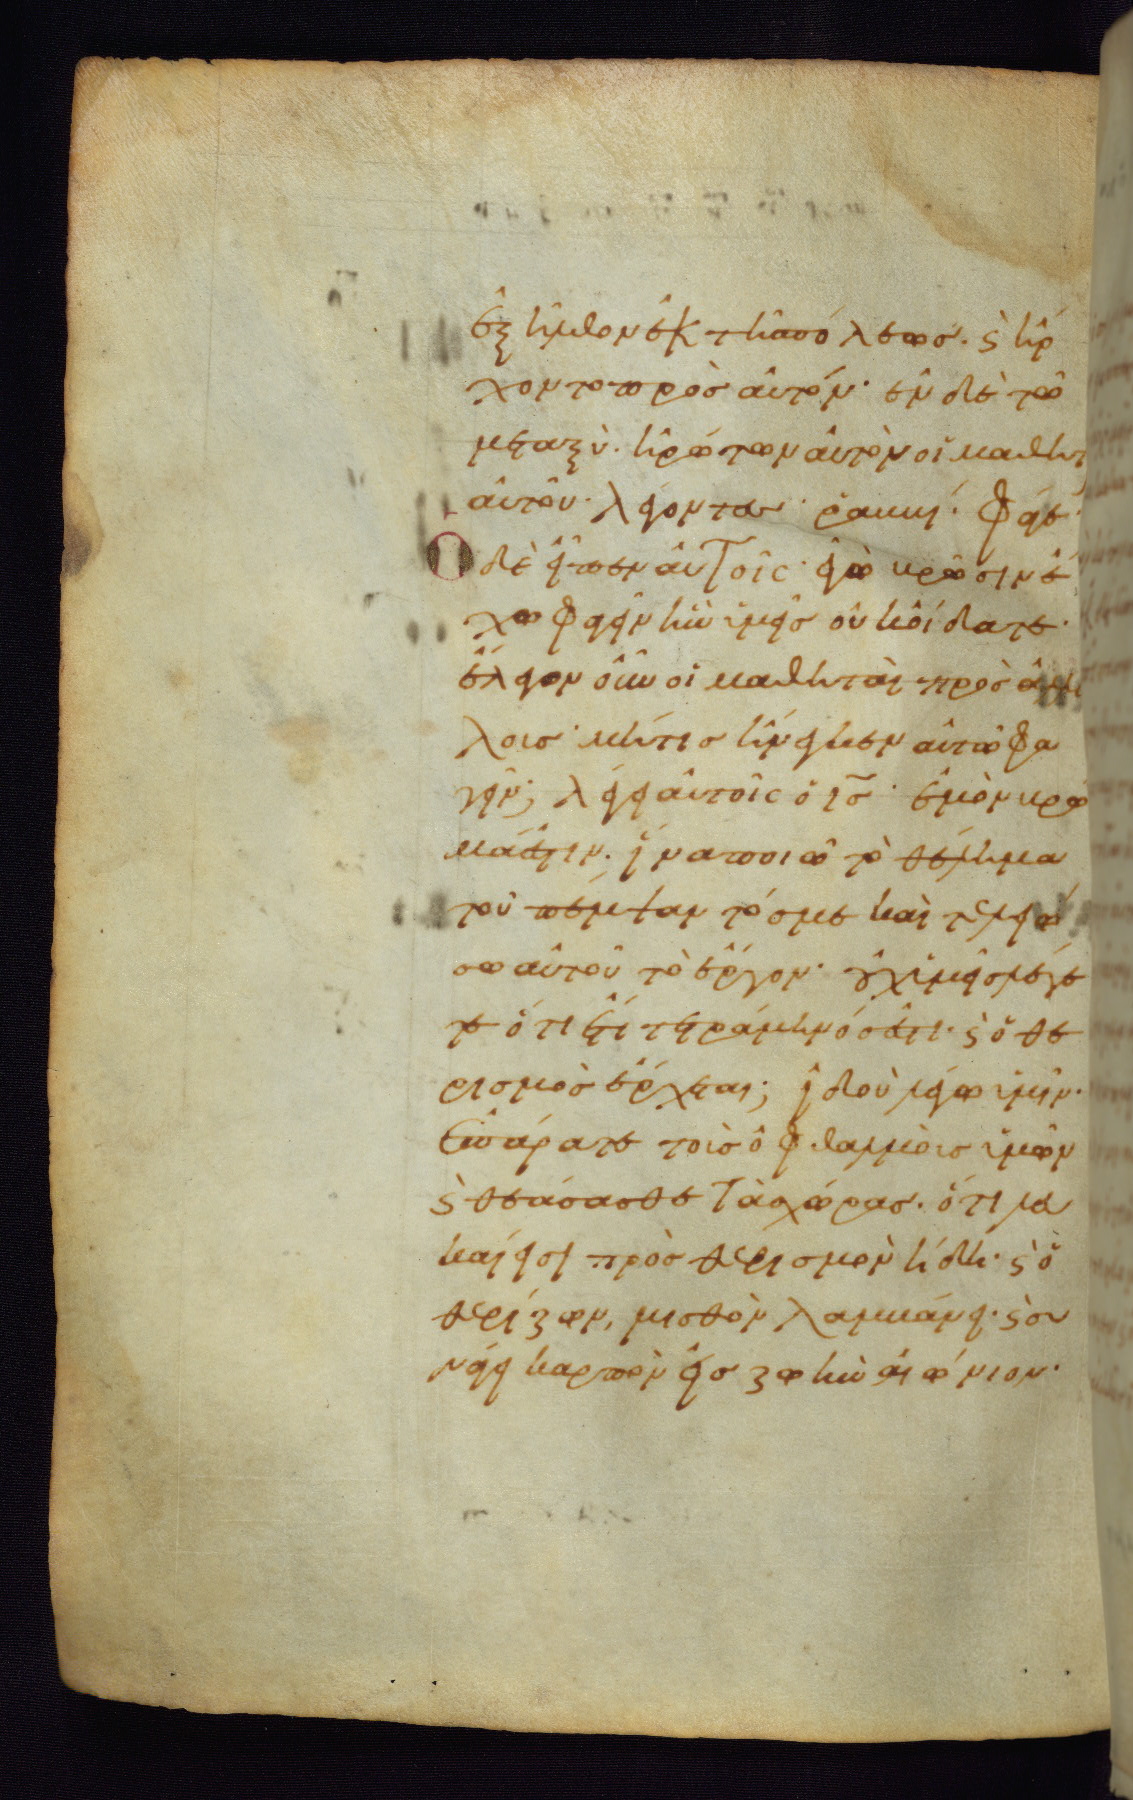 ἐξῆλθον ἐκ τῆς πόλεως· ϗ ἤρ
χοντο πρὸς αὐτόν· ἐν δὲ τῶ
μεταξὺ· ἠρώτων αὐτὸν οἱ μαθητ
αὐτοῦ· λέγοντες· ῥαββί· φάγε·
Ὁ δὲ εἶπεν αὐτοῖς· ἐγὼ βρῶσιν ἔ
χω φαγεῖν ἣν ὑμεῖς οὐκ οἴδατε·
ἔλεγον οὖν οἱ μαθηταὶ πρὸς ἀλλή
λοις· μήτις ἤνεγκεν αὐτῶ φα
γεῖν; λέγει αὐτοῖς ὁ ις· ἐμὸν βρῶ
μά ἐστιν· ἵνα ποιῶ τὸ θέλημα
τοῦ πέμψαντός με καὶ τελειώ
σω αὐτοῦ τὸ ἔργον· οὐχ ὑμεῖς λέγε
τε ὅτι ἔτι τετράμηνός ἐστι· ϗ ὁ θε
ρισμὸς ἔρχεται; ἰδοὺ λέγω ὑμῖν·
ἐπάρατε τοὺς ὀφθαλμοὺς ὑμῶν
ϗ θεάσασθε τὰς χώρας· ὅτι λευ
καί εἰσι πρὸς θερισμὸν ἤδη· ϗ ὁ
θερίζων, μισθὸν λαμβάνει· ϗ συ
νάγει καρπὸν εἰς ζωὴν αἰώνιον·